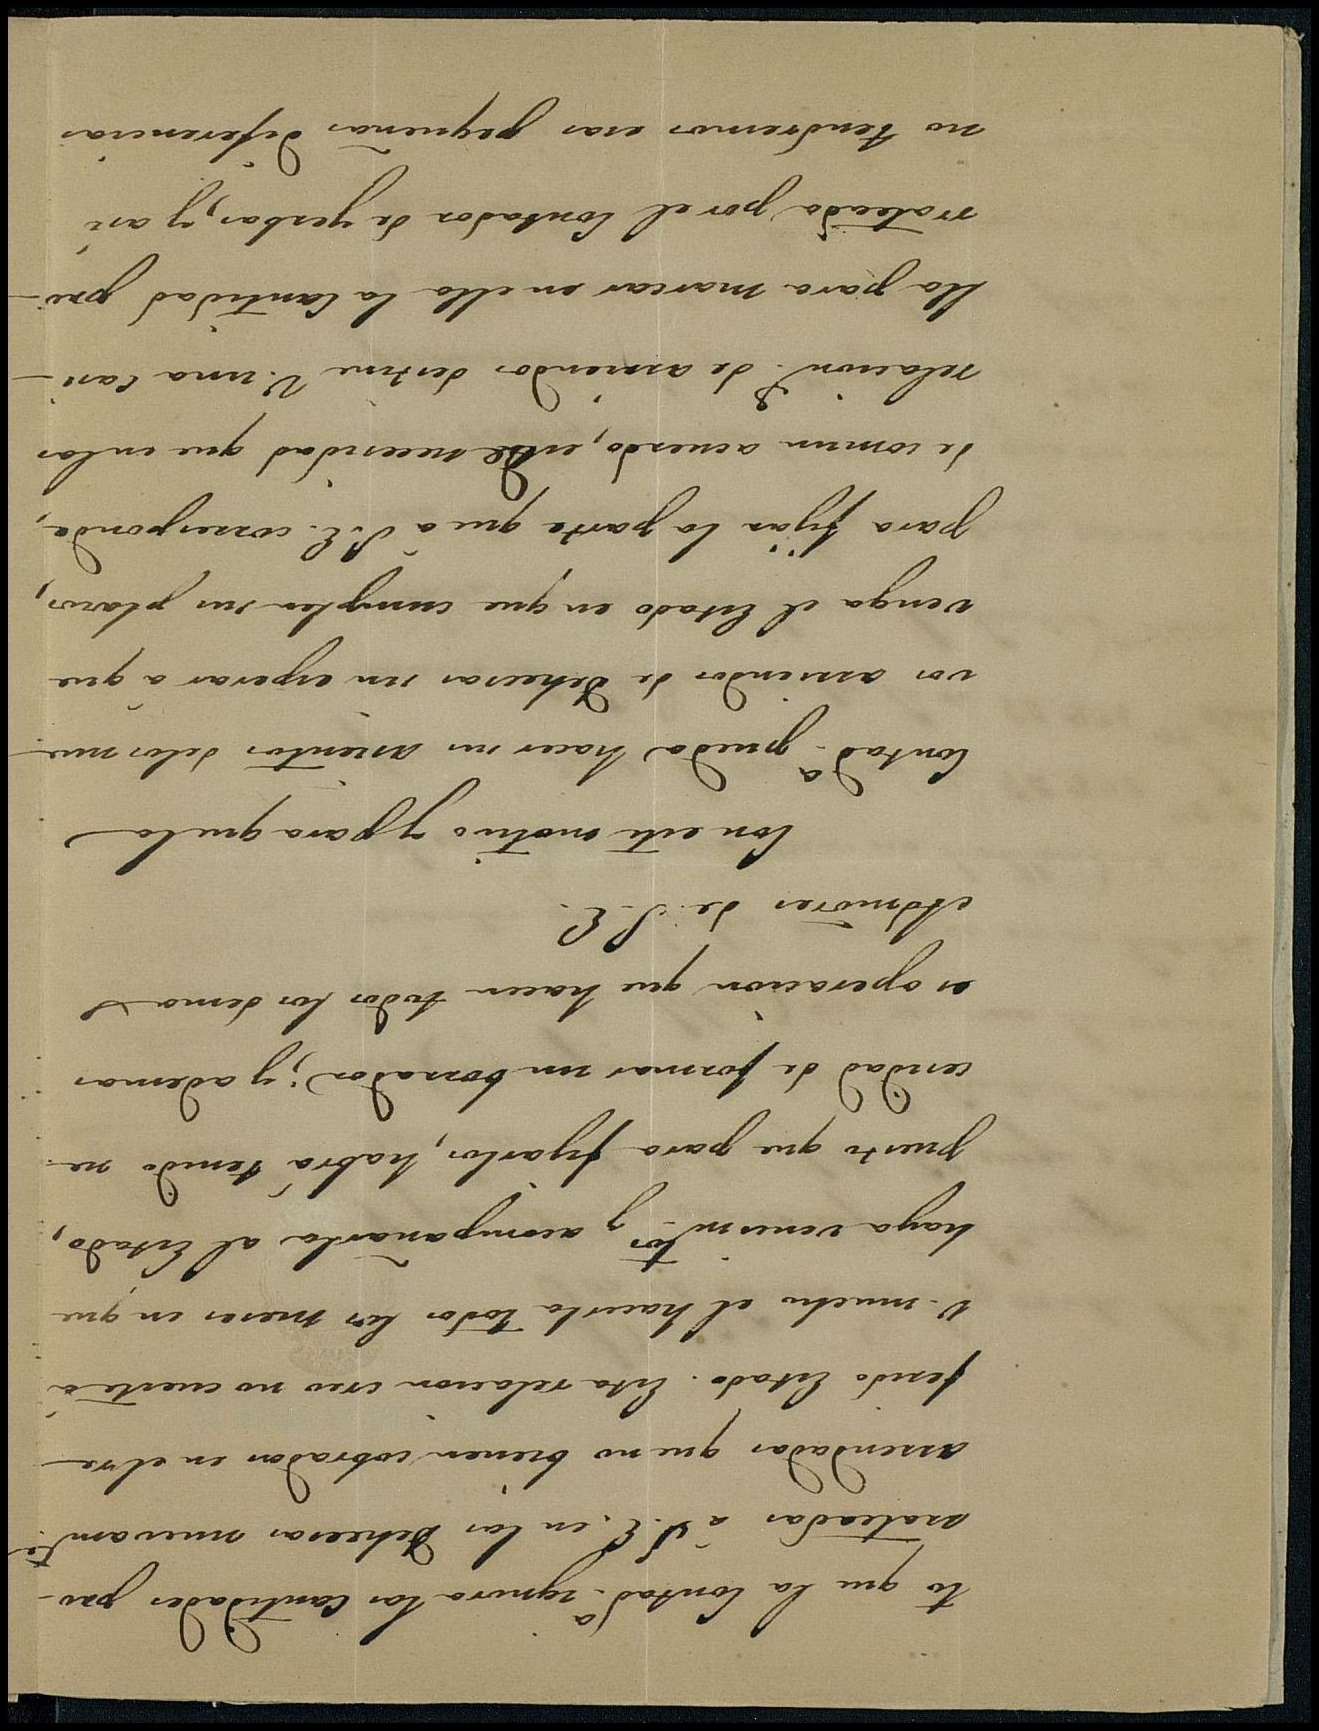 to que la Contad.ª ignora las Cantidades pro-
rrateadas á S. E. en las Dehesas nuevam.te
arrendadas que no bienen cobradas en el re-
ferido Estado. Esta relacion creo no cueste á
V. mucho el hacerla todos los meses en que
haya vencim.tos y acompañarla al Estado,
puesto que para fijarlos, habrá tenido ne-
cesidad de formar un borrador; y ademas
es operacion que hacen todos los demas
Admōres de S. E.
Con este motivo y para que la
Contad.ª pueda hacer sus asientos delos nue-
vos arriendos de Dehesas sin esperar a que
venga el Estado en que cumplen sus plazos,
para fijar la parte que á S. E. corresponde,
de comun acuerdo, es de necesidad que en las
relacion.s de arriendos destine V. una Casi-
lla para marcar en ella la Cantidad pro-
rrateada por el Contador de yerbas, y asi
no tendremos esas pequeñas diferencias